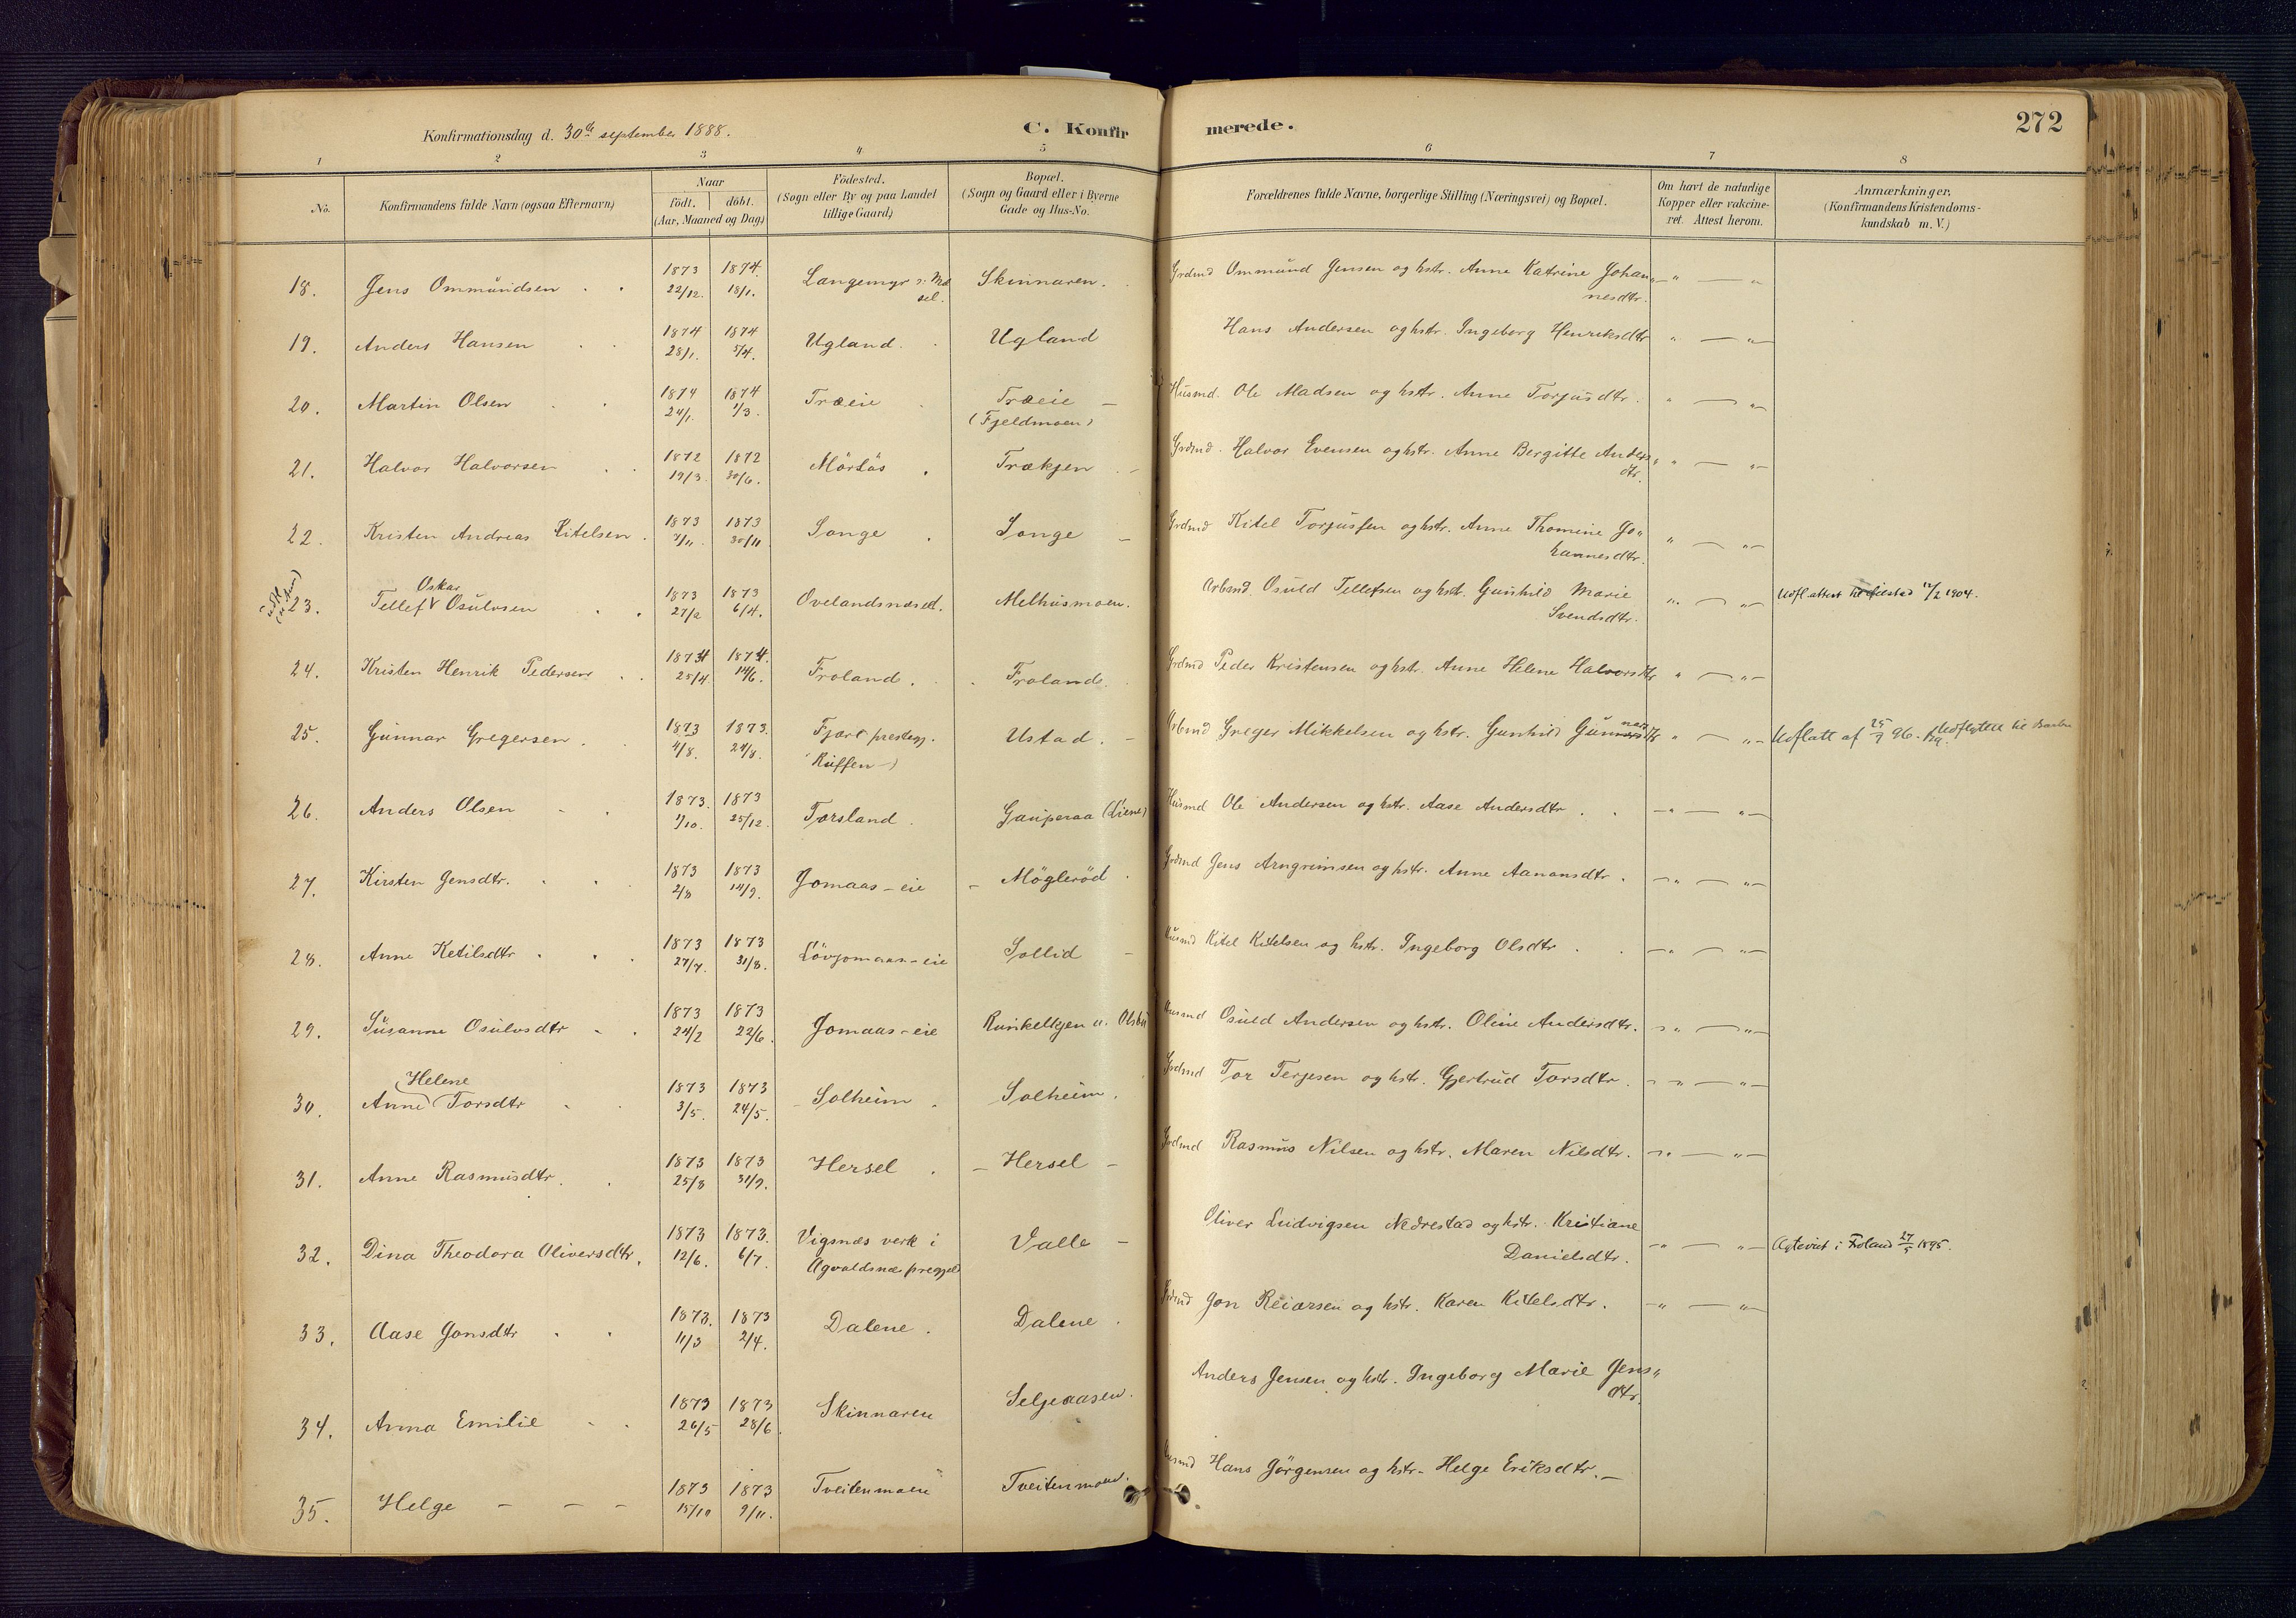 Konfirmationsdag d. 30te september 1888.
C. Konfirmerede.
272
1 2 3 4 5 6 7 8
No.
Konfirmandens fulde Navn (ogsaa Efternavn)
Naar
födt. döbt.
(Aar, Maaned og Dag)
Födested.
(Sogn eller By og paa Landet
tillige Gaard)
Bopæl.
(Sogn og Gaard eller i Byerne
Gade og Hus-No.
Forældrenes fulde Navne, borgerlige Stilling (Næringsvei) og Bopæl.
Om havt de naturlige
Kopper eller vakcine-
ret. Attest herom.
Anmærkninger.
(Konfirmandens Kristendoms-
kundskab m. V.)
18. Jens Ommundsen 1873 22/12. 1874. 18/1. Langemyr Skinnaren. Grdmd Ommund Jensen og hstr. Anne Katrine Johan„
nesdtr. „ — „
19. Anders Hansen 1874 28/1. 1874 5/4. Ugland. Ugland Hans Andersen og hstr. Ingeborg Henriksdtr „ — „
20. Martin Olsen 1874 24/1. 1874 1/3. Træeie Træeie —
(Fjeldmoen) Husmd. Ole Madsen og hstr. Anne Torjusdtr. „ — „
21. Halvor Halvorsen 1872 19/3. 1872 30/6. Mörlös Trækjen Grdmd. Halvor Evensen og hstr. Anne Bergitte Anders„
dtr. „ — „
22. Kristen Andreas Kitelsen. 1873 7/11 1873 30/11 Songe Songe — Grdmd Kitel Torjusfen og hstr. Anne Thomine Jo„
hannesdtr. „ — „
23. Tellef Oskar Osulvsen 1873 27/2 1873 6/4. Ovelandsnæset. Melhusmoen. Arbmd. Osuld Tellefsen og hstr. Gunhild Marie
Svendsdtr. „ — „ Udfl. attest 12/2 1904.
24. Kristen Henrik Pedersen 1874 25/4 1874. 14/6. Froland. Froland. Grdmd Peder Kristensen og hstr. Anne Helene Halvorsdtr „ — „
25. Gunnar Gregersen. 1873 4/8. 1873. 24/8. Fjære prestegj.
(Ruffen) Ustad. — Arbmd Greger Mikkelsen og hstr. Gunhild „ — „ Udflatt af 25/7 96.
26. Anders Olsen 1873. 1/10. 1873 25/12. Torsland. Gauperaa (Liene) Husmd Ole Andersen og hstr. Aase Andersdtr. „ — „
27. Kirsten Jensdtr. 1873 2/8 1873 14/9. Jomaas-eie Mögleröd Grdmd Jens Arngrimsen og hstr. Anne Aanonsdtr. „ — „
28. Anne Ketilsdtr 1873 27/7. 1873 31/8. Lövjomaas-eie Sollid Husmd Kitel Kitelsen og hstr. Ingeborg Olsdtr. „ — „
29. Susanne Osulvsdtr 1873 24/2 1873 22/6. Jomaas-eie Husmd Osuld Andersen og hstr. Oline Andersdtr. „ — „
30. Anne Helene Torsdtr 1873 3/5. 1873 24/5. Solheim Solheim. Grdmd Tor Terjesen og hstr. Gjertrud Torsdtr. „ — „
31. Anne Rasmusdtr. 1873 25/8 1873 31/9. Hersel. — Hersel — Grdmd Rasmus Nilsen og hstr. Maren Nilsdtr. „ — „
32. Dina Theodora Oliversdtr. 1873 12/6. 1873. 6/7. Vigsnæs verk i
Agvaldsnæs pregjel Valle — Oliver Ludvigsen Nedrestad og hstr. Kristiane
Danielsdtr. „ — „ Ægteviet i Froland 27/5 1895.
33. Aase Jonsdtr 1873. 11/3 1873 2/4. Dalene. Dalene. Grdmd Jon Reiarsen og hstr. Karen Kitelsdtr. „ — „
34. Anna Emilie 1873 26/5 1873 28/6. Skinnaren Seljeaasen. Anders Jensen og hstr. Ingeborg Marie Jens„
dtr.
35. Helge — — — 1873 15/10 1873 9/11. Tveitenmoen Tveitenmoen. Husmd Hans Jörgensen og hstr. Helge Eriksdtr. —